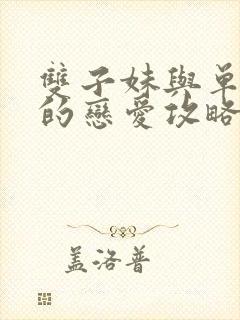 雙子妹與單
的戀愛攻略
蓋洛普